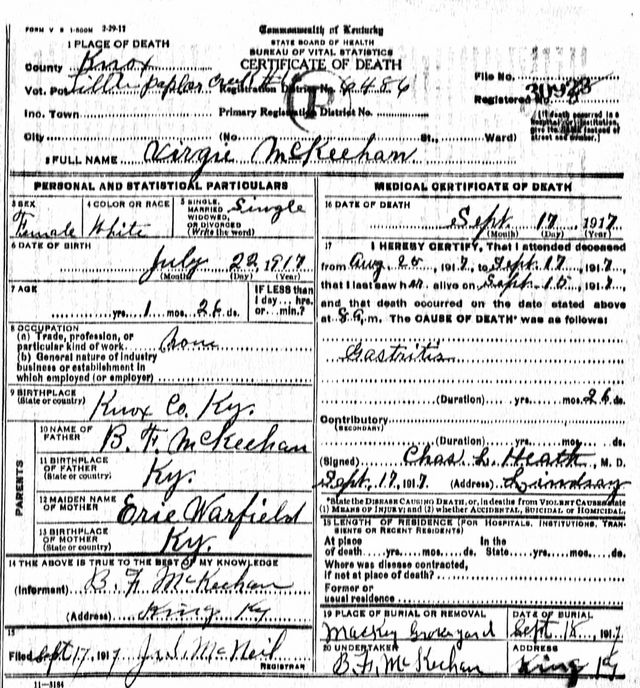 FORM V S 1-500M 3-29-11
Commonwealth of Kentucky
STATE BOARD OF HEALTH
BUREAU OF VITAL STATISTICS
CERTIFICATE OF DEATH
1 PLACE OF DEATH
County Knox
Vot. Pct. poplar creek Registration District No. 6486
File No. 30923
Inc. Town Primary Registration District No.
Registered No.
(If death occurred in a Hospital or Institution, give its NAME instead of street and number.)
City (No. St., Ward)
2 FULL NAME Virgie McKeehan
PERSONAL AND STATISTICAL PARTICULARS
3 SEX Female
4 COLOR OR RACE White
5 SINGLE, MARRIED, WIDOWED, OR DIVORCED (Write the word) Single
6 DATE OF BIRTH
July 22, 1917
(Month) (Day) (Year)
7 AGE
yrs. 1 mos. 26 ds.
IF LESS than 1 day... hrs. or... min.?
8 OCCUPATION
(a) Trade, profession, or particular kind of work none
(b) General nature of industry business or establishment in which employed (or employer)
9 BIRTHPLACE (State or country) Knox Co. Ky.
PARENTS
10 NAME OF FATHER B. F. McKeehan
11 BIRTHPLACE OF FATHER (State or country) Ky.
12 MAIDEN NAME OF MOTHER Erie Warfield
13 BIRTHPLACE OF MOTHER (State or country) Ky.
14 THE ABOVE IS TRUE TO THE BEST OF MY KNOWLEDGE
(Informent) B. F. McKeehan
(Address) King Ky
15
Filed Sept 17, 1917 J. S. McNeil
REGISTRAR
11-3184
MEDICAL CERTIFICATE OF DEATH
16 DATE OF DEATH
Sept. 17, 1917
(Month) (Day) (Year)
17 I HEREBY CERTIFY, That I attended deceased
from Aug 25 1917, to Sept. 17, 1917,
that I last saw her alive on Sept. 15, 1917,
and that death occurred on the date stated above
at 8 a.m. The CAUSE OF DEATH* was as follows:
Gastritis
(Duration) yrs. mos. 26 ds.
Contributory (SECONDARY)
(Duration) yrs. mos. ds.
(Signed) Chas. L. Heath, M. D.
Sept. 17, 1917 (Address) Lindsay
*State the DISEASE CAUSING DEATH, or, in deaths from VIOLENT CAUSES state
(1) MEANS OF INJURY; and (2) whether ACCIDENTAL, SUICIDAL or HOMICIDAL.
18 LENGTH OF RESIDENCE (FOR HOSPITALS, INSTITUTIONS, TRANSIENTS OR RECENT RESIDENTS)
At place of death yrs. mos. ds. In the State yrs. mos. ds.
Where was disease contracted, if not at place of death?
Former or usual residence
19 PLACE OF BURIAL OR REMOVAL Mackey Graveyard
DATE OF BURIAL Sept. 18, 1917
20 UNDERTAKER B. F. McKeehan
ADDRESS King Ky